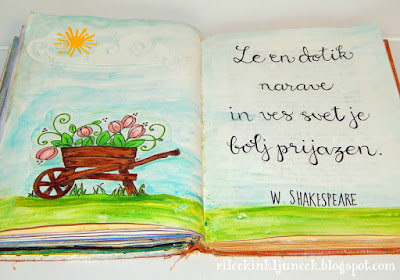 Le en dotik
narave
in ves svet je
bolj prijazen.
W. SHAKESPEARE
rilcckinkljuncek.blogspot.com